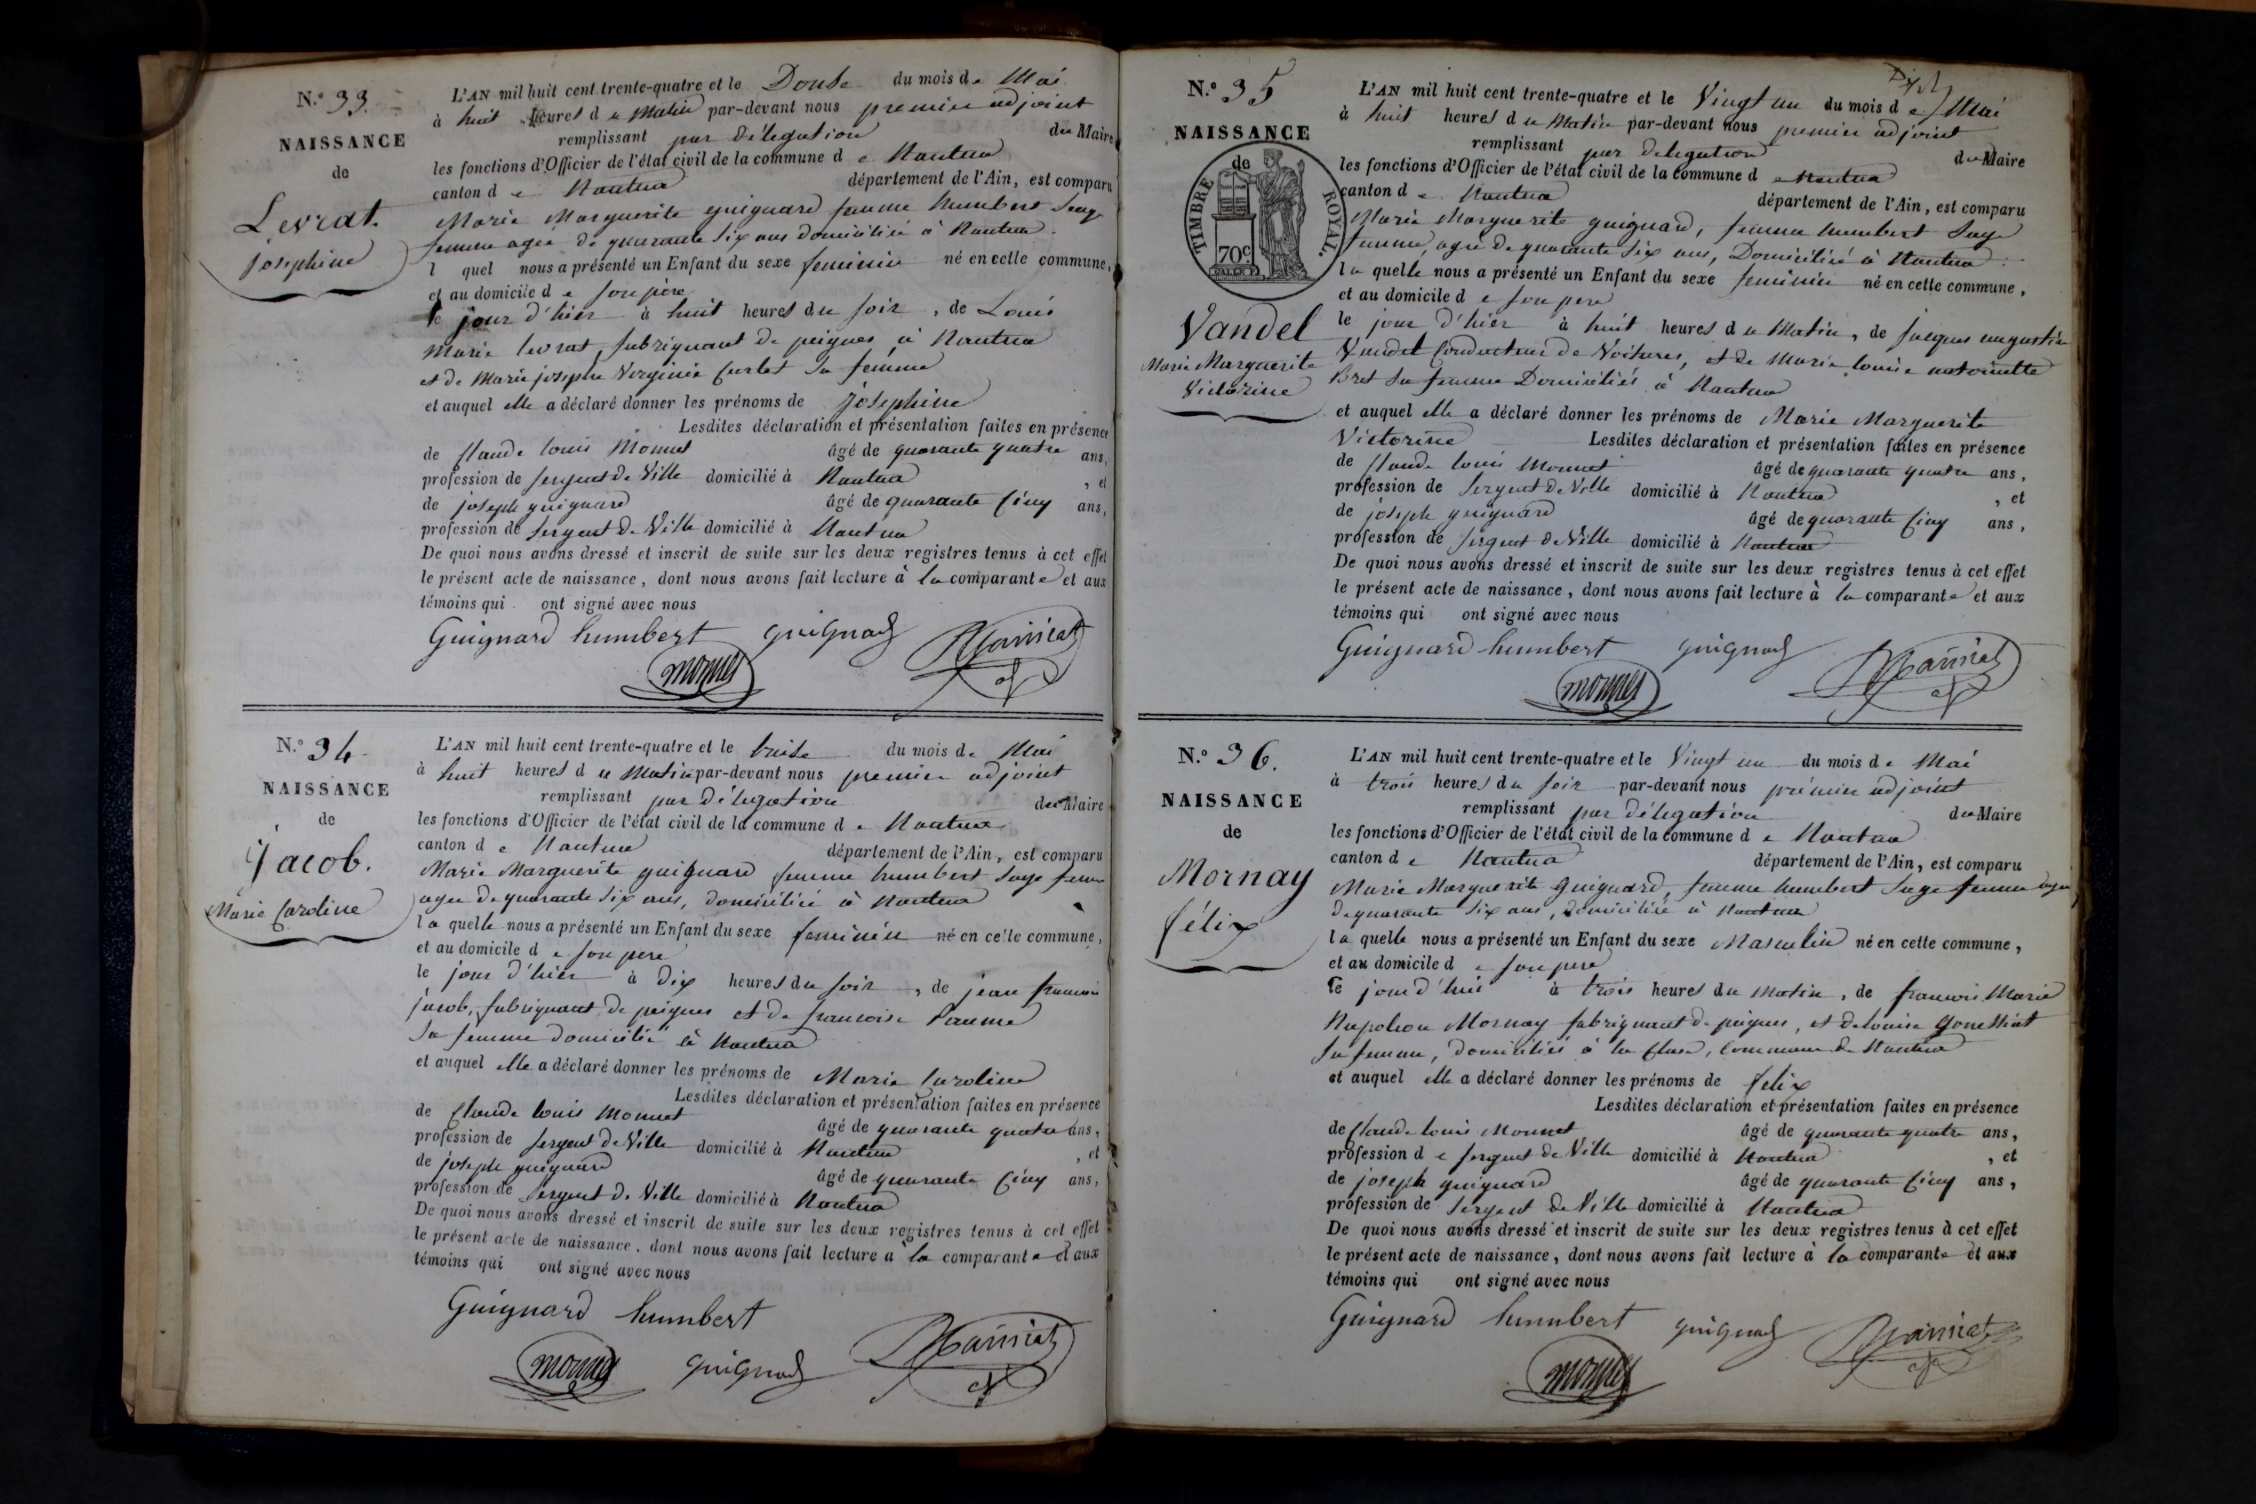 N.º 33
NAISSANCE
de
Levrat.
josephine
L'AN mil huit cent trente-quatre et le Douse du mois de Mai
à huit heures du Matin par-devant nous premier adjoint
remplissant par Délégation du Maire
les fonctions d'Officier de l'état civil de la commune de Nantua
canton de Nantua département de l'Ain, est comparu
Marie Marguerite guignard femme humbert Sage
femme agée de quarante Six ans domiciliée à Nantua
l quel nous a présenté un Enfant du sexe feminin né en cette commune,
et au domicile de son père
le jour d'hier à huit heures du soir, de Louis
Marie levrat, fabriquant de peignes à Nantua
et de Marie josephe Virginie Curlet Sa femme
et auquel elle a déclaré donner les prénoms de Josephine
Lesdites déclaration et présentation faites en présence
de Claude louis Monnet âgé de quarante quatre ans,
profession de sergent de Ville domicilié à Nantua, et
de joseph guignard âgé de quarante Cinq ans,
profession de Sergent de Ville domicilié à Nantua
De quoi nous avons dressé et inscrit de suite sur les deux registres tenus à cet effet
le présent acte de naissance, dont nous avons fait lecture à la comparante et aux
témoins qui ont signé avec nous
Guignard humbert guignard
monnet
N.º 34
NAISSANCE
de
Jacob.
Marie Caroline
L'AN mil huit cent trente-quatre et le treise du mois de Mai
à huit heures du Matin par-devant nous premier adjoint
remplissant par Délégation du Maire
les fonctions d'Officier de l'état civil de la commune de Nantua
canton de Nantua département de l'Ain, est comparu
Marie Marguerite guignard femme humbert Sage femme
agée de quarante Six ans, domiciliée à Nantua
la quelle nous a présenté un Enfant du sexe feminin né en cette commune,
et au domicile de son pere
le jour d'hier à dix heures du soir, de jean francois
jacob, fabriquant de peignes et de francoise Paume
Sa femme domiciliés à Nantua
et auquel elle a déclaré donner les prénoms de Marie Caroline
Lesdites déclaration et présentation faites en présence
de Claude louis Monnet âgé de quarante quatre ans,
profession de Sergent de Ville domicilié à Nantua, et
de joseph guignard âgé de quarante Cinq ans,
profession de Sergent de Ville domicilié à Nantua
De quoi nous avons dressé et inscrit de suite sur les deux registres tenus à cet effet
le présent acte de naissance, dont nous avons fait lecture à la comparante et aux
témoins qui ont signé avec nous
Guignard humbert
monnet guignard
N.º 35
NAISSANCE
de
TIMBRE ROYAL.
70c
Vandel
Marie Marguerite
Victorine
L'AN mil huit cent trente-quatre et le Vingt un du mois de Mai
à huit heures du Matin par-devant nous premier adjoint
remplissant par délégation du Maire
les fonctions d'Officier de l'état civil de la commune de Nantua
canton de Nantua département de l'Ain, est comparu
Marie Marguerite guignard, femme humbert Sage
femme, agée de quarante Six ans, Domiciliée à Nantua
la quelle nous a présenté un Enfant du sexe feminin né en cette commune,
et au domicile de son pere
le jour d'hier à huit heures du Matin, de jacques augustin
Vandel Conducteur de Voitures, et de Marie louise antoinette
Bret Sa femme Domiciliés à Nantua
et auquel elle a déclaré donner les prénoms de Marie Marguerite
Victorine Lesdites déclaration et présentation faites en présence
de Claude louis Monnet âgé de quarante quatre ans,
profession de Sergent de Ville domicilié à Nantua, et
de joseph guignard âgé de quarante Cinq ans,
profession de Sergent de Ville domicilié à Nantua
De quoi nous avons dressé et inscrit de suite sur les deux registres tenus à cet effet
le présent acte de naissance, dont nous avons fait lecture à la comparante et aux
témoins qui ont signé avec nous
Guignard humbert guignard
monnet
N.º 36.
NAISSANCE
de
Mornay
félix
L'AN mil huit cent trente-quatre et le Vingt un du mois de Mai
à trois heures du soir par-devant nous prémier adjoint
remplissant par délégation du Maire
les fonctions d'Officier de l'état civil de la commune de Nantua
canton de Nantua département de l'Ain, est comparu
Marie Marguerite Guignard, femme humbert Sage femme agée
de quarante Six ans, domiciliée à Nantua
la quelle nous a présenté un Enfant du sexe Masculin né en cette commune,
et au domicile de son pere
le jour d'hui à trois heures du matin, de francois Marie
Napoleon Mornay fabriquant de peignes, et de louise Gonettiat
Sa femme, domiciliés à la Cluse, Commune de Nantua
et auquel elle a déclaré donner les prénoms de félix
Lesdites déclaration et présentation faites en présence
de Claude louis Monnet âgé de quarante quatre ans,
profession de sergent de Ville domicilié à Nantua, et
de joseph guignard âgé de quarante Cinq ans,
profession de Sergent de Ville domicilié à Nantua
De quoi nous avons dressé et inscrit de suite sur les deux registres tenus à cet effet
le présent acte de naissance, dont nous avons fait lecture à la comparante et aux
témoins qui ont signé avec nous
Guignard humbert guignard
monnet